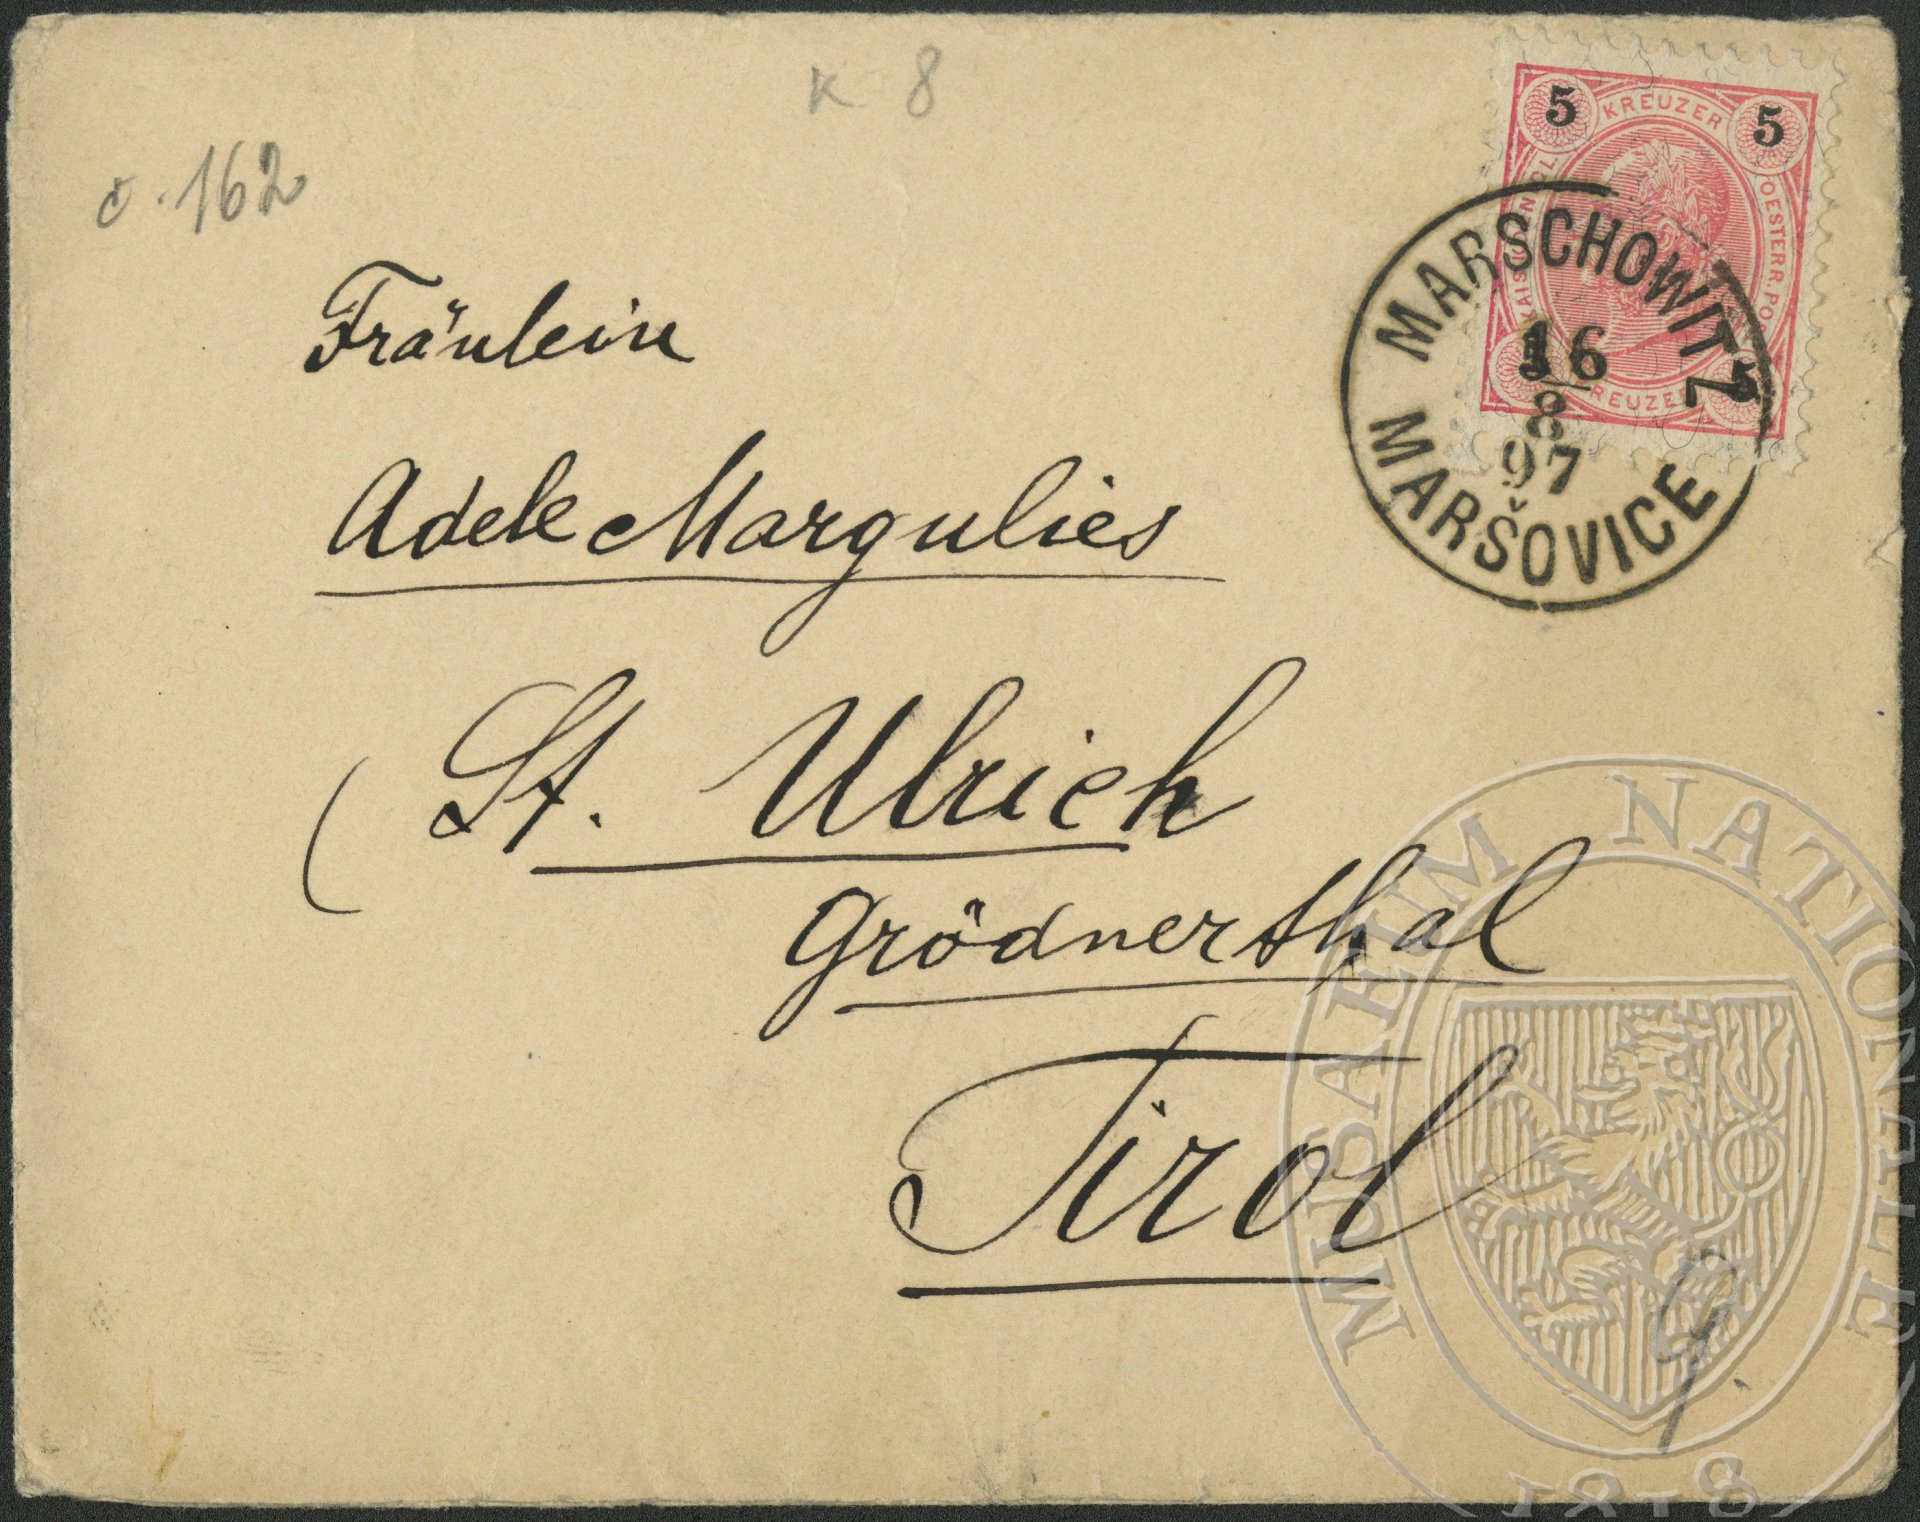 K 8
č. 162
5 KREUZER 5
KAIS. KÖNIGL.
OESTERR. PO
5 KREUZE 5
MARSCHOWITZ
16
8
97
MARŠOVICE
Fräulein
Adele Margulies
St. Ulrich
Grödnerthal
Tirol
9
MUSAEUM NATIONALE
1818